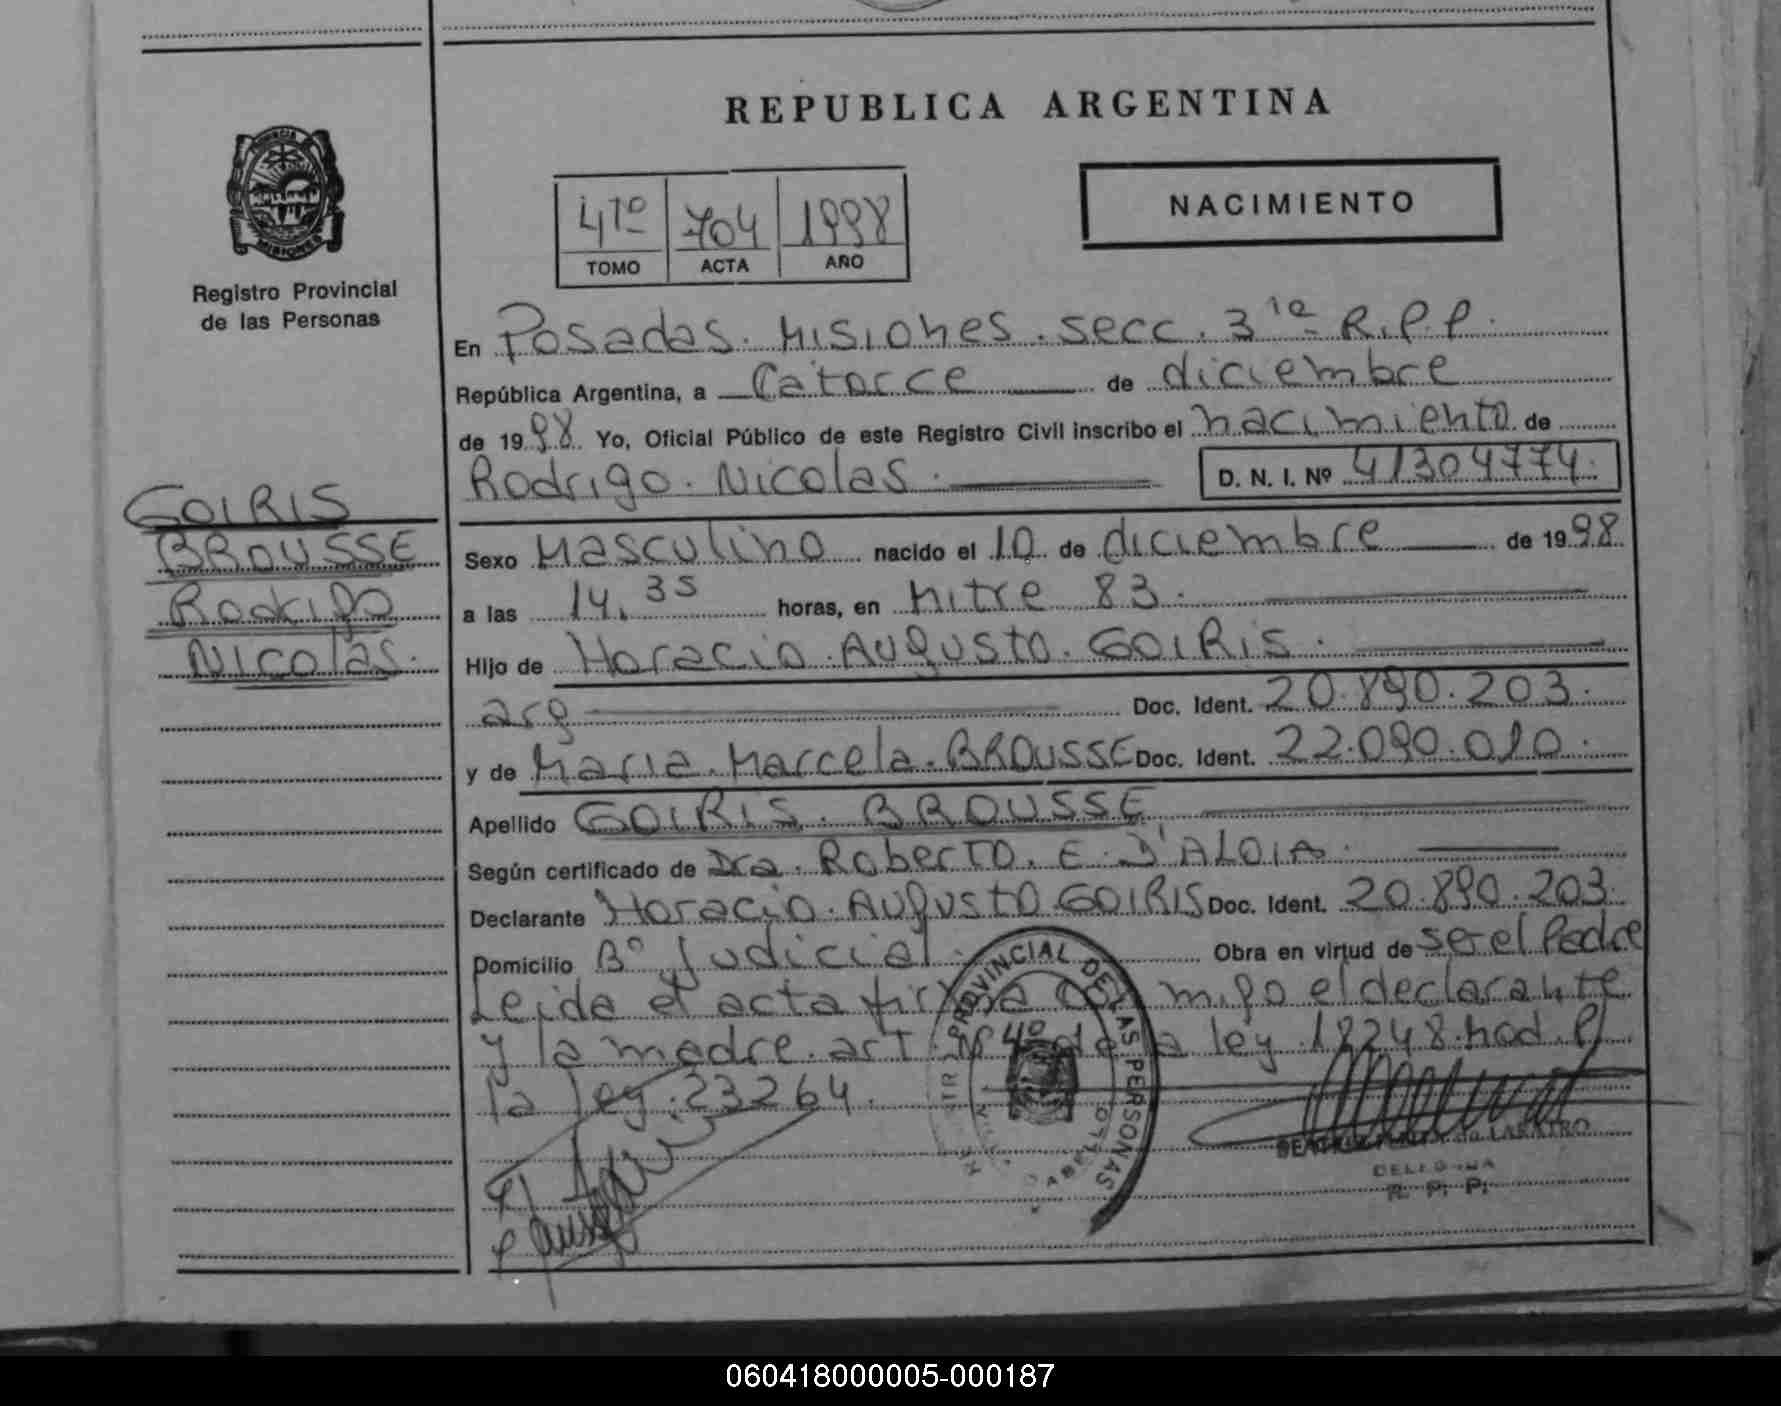 REPUBLICA ARGENTINA
PROVINCIA DE
MISIONES
Registro Provincial
de las Personas
4to 704 1998
TOMO ACTA AÑO
NACIMIENTO
En Posadas. Misiones. secc. 3ra R.P.P.
República Argentina, a Catorce de diciembre
de 1998 Yo, Oficial Público de este Registro Civil inscribo el nacimiento de
Rodrigo. Nicolas. D. N. I. Nº 41304774.
GOIRIS
BROUSSE
Rodrigo
Nicolas.
Sexo Masculino nacido el 10 de diciembre de 1998
a las 14.35 horas, en Mitre 83.
Hijo de Horacio. Augusto. GOIRIS.
arg Doc. Ident. 20.890.203.
y de Maria. Marcela. BROUSSE Doc. Ident. 22.090.010.
Apellido GOIRIS. BROUSSE
Según certificado de Dra. Roberto. E. D'ALOIA.
Declarante Horacio. Augusto GOIRIS Doc. Ident. 20.890.203.
Domicilio Bº Judicial. Obra en virtud de ser el Padre
Leida el acta firma con migo el declarante
y la madre. art. Nº 4º de la ley. 18248. mod. P/
la ley. 23264.
PROVINCIAL DE LAS PERSONAS
R. P. P.
060418000005-000187